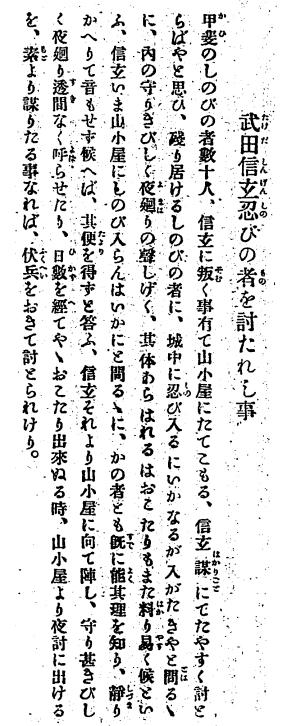 武田信玄忍びの者を討たれし事
甲斐のしのびの者數十人、信玄に叛く事有て山小屋にたてこもる、信玄謀にてたやすく討と
らばやと思ひ、殘り居けるしのびの者に、城中に忍び入るにいかなるが入がたきやと問るゝ
に、內の守りきびしく夜廻りの聲しげく、其体あらはれるはおこたりもまた料り易く候とい
ふ、信玄いま山小屋にしのび入らんはいかにと問るゝに、かの者とも旣に能其理を知り、靜り
かへりて音もせず候へば、其便を得ずと答ふ、信玄それより山小屋に向て陣し、守り甚きびし
く夜廻り透間なく呼らせたり、日數を經てやゝおこたり出來ぬる時、山小屋より夜討に出ける
を、素より謀りたる事なれば、伏兵をおきて討とられけり。